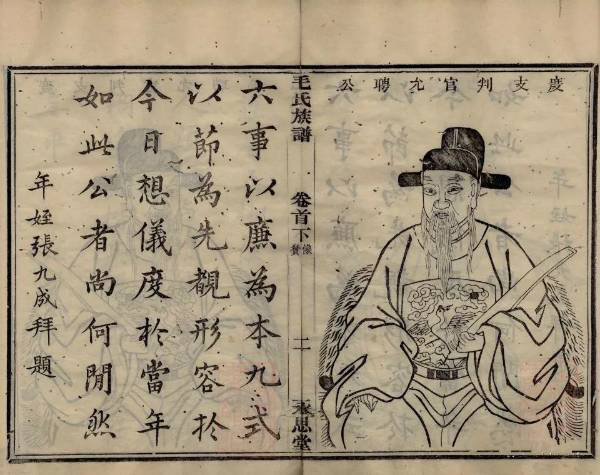 度支判官允聘公
毛氏族譜
卷首下
像贊
二
永思堂
六事以廉為本九式
以節為先觀形容於
今日想儀度於當年
如此公者尚何閒然
年姪張九成拜題